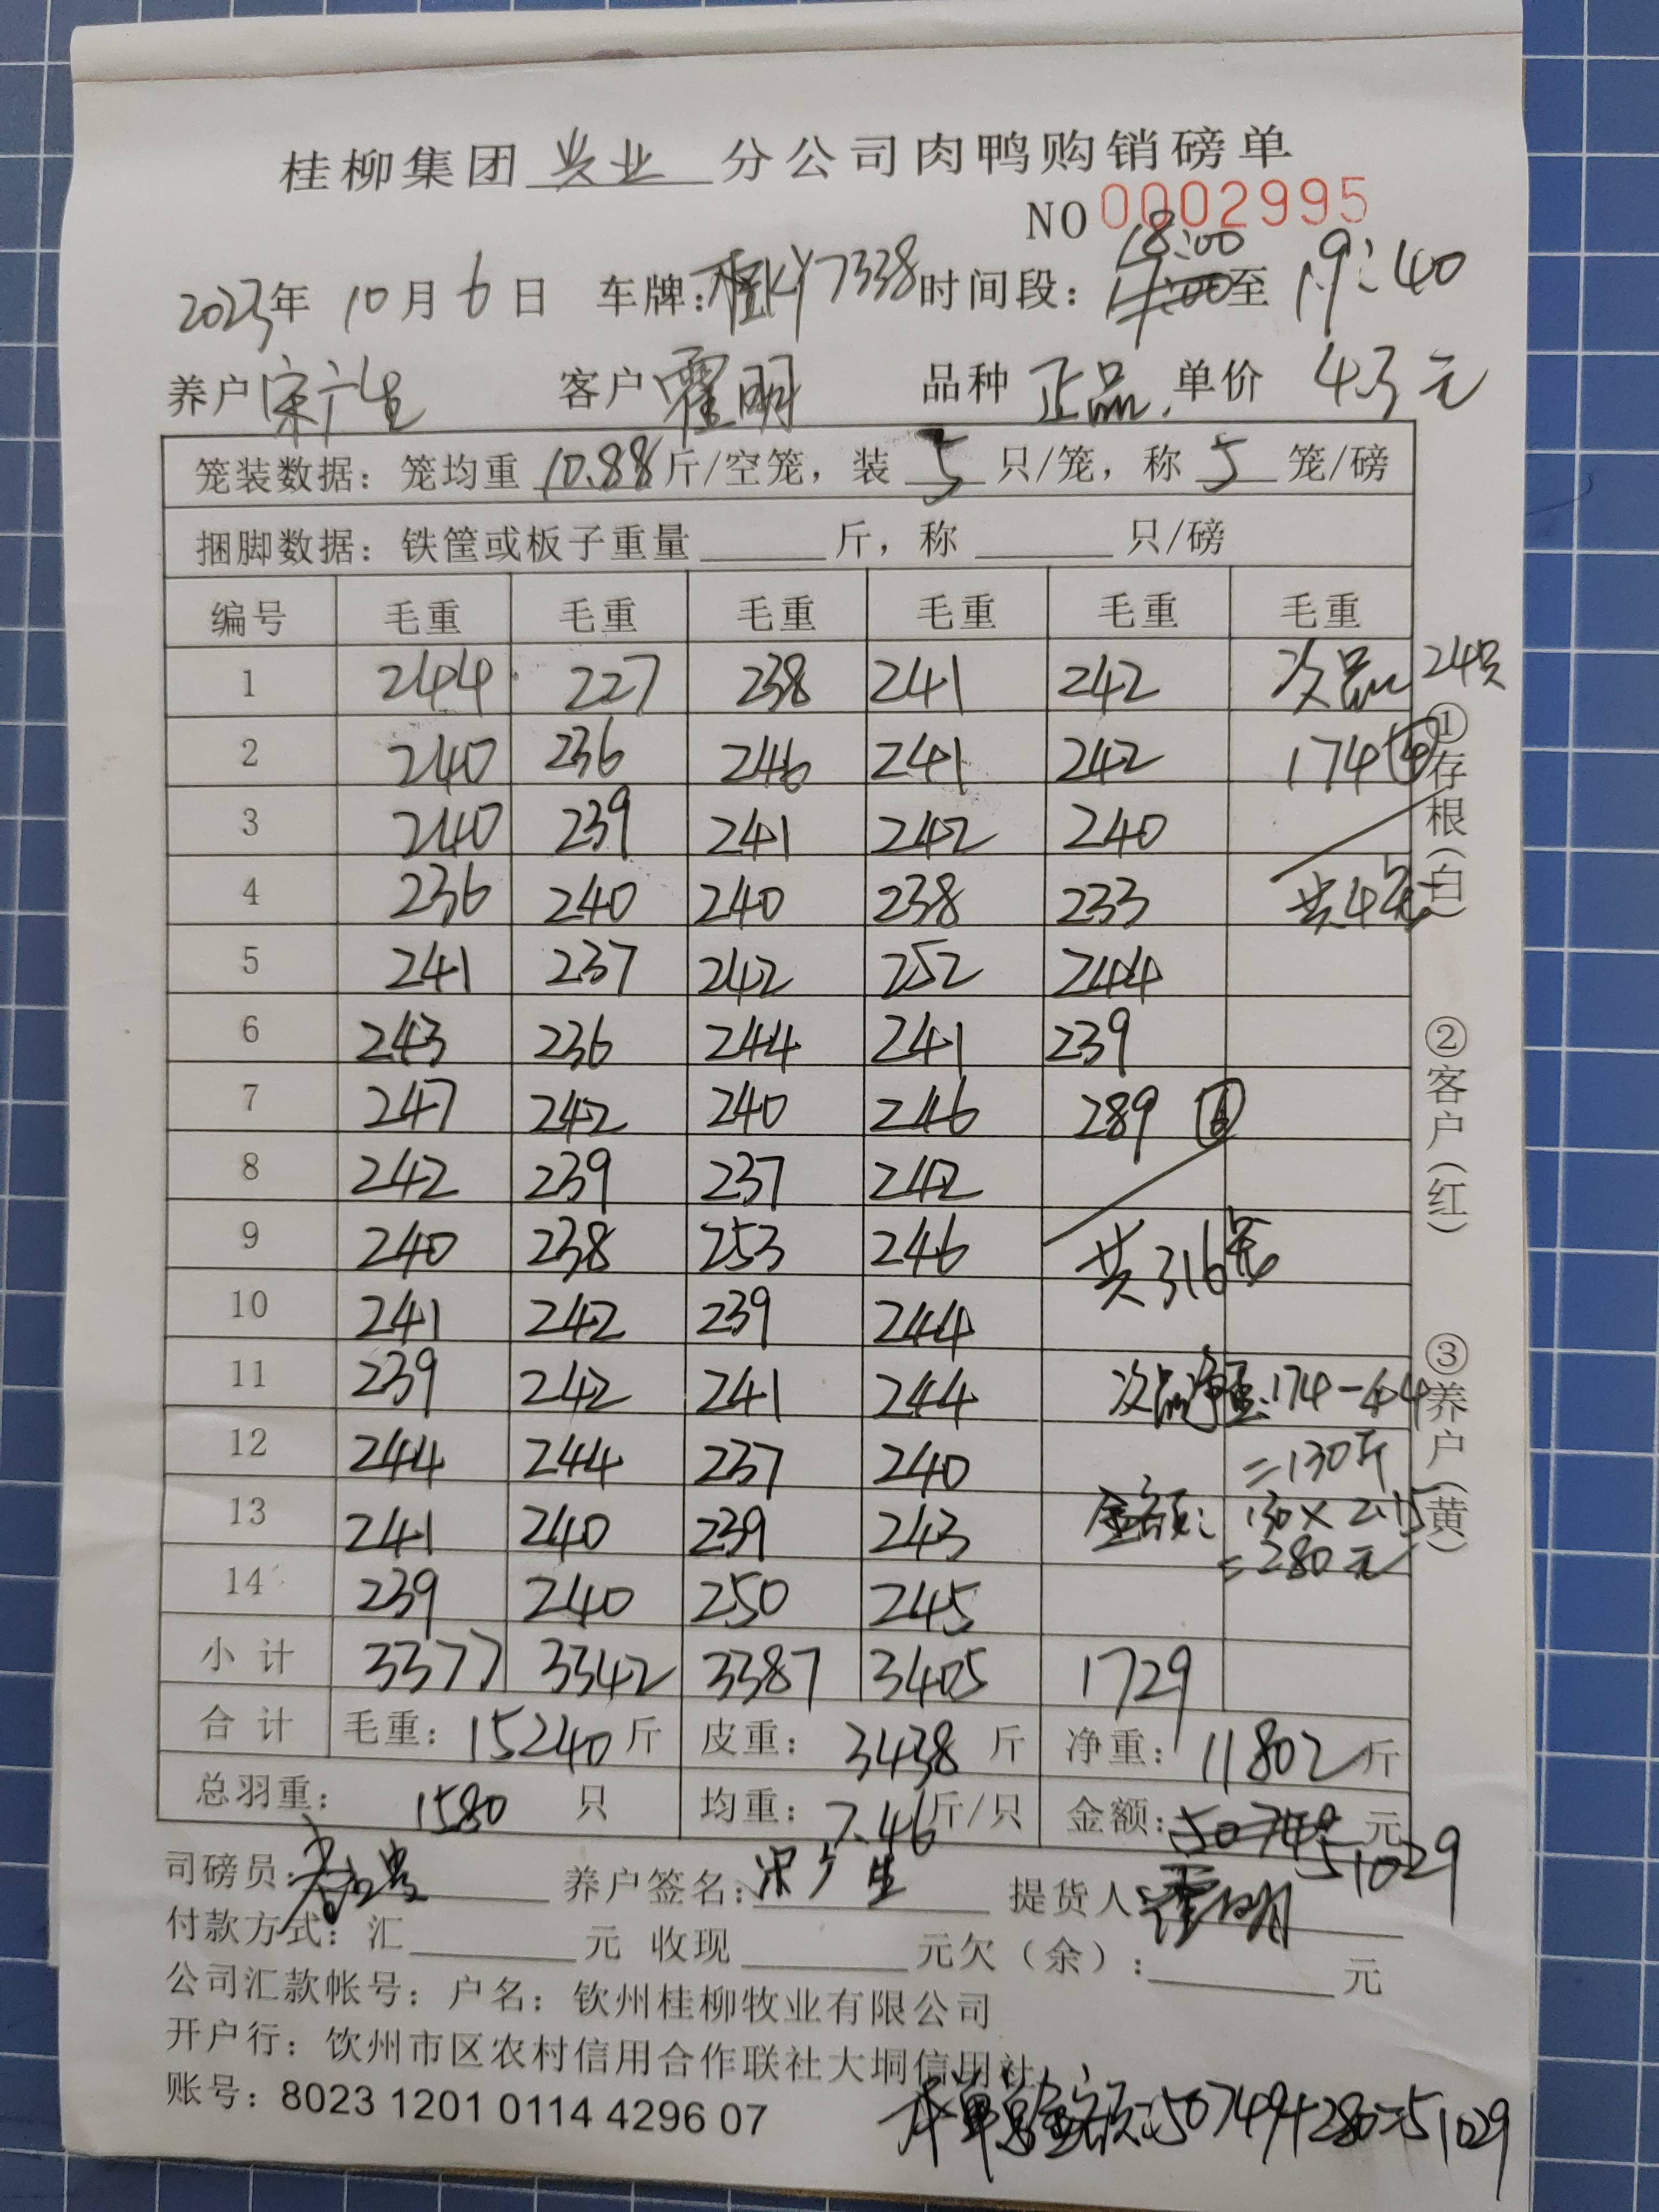 桂柳集团兴业分公司肉鸭购销磅单
NO 0002995
18:00
2023年 10月 6日 车牌:桂KY7338 时间段: 至 19:40
养户 宋广生 客户 霍明 品种 正品 单价 4.3元
笼装数据:笼均重 10.88 斤/空笼,装 5 只/笼,称 5 笼/磅
捆脚数据:铁筐或板子重量 斤,称 只/磅
编号 毛重 毛重 毛重 毛重 毛重 毛重
1 244 227 238 241 242 次品 24只
2 240 236 246 241 242 174 ④
3 240 239 241 242 240
4 236 240 240 238 233 共4笼
5 241 237 242 252 244
6 243 236 244 241 239
7 247 242 240 246 289 ⑥
8 242 239 237 242
9 240 238 253 246 共316笼
10 241 242 239 244
11 239 242 241 244 次品净重:174-44
12 244 244 237 240 =130斤
13 241 240 239 243 金额: 130×2.15
=280元
14 239 240 250 245
小计 3377 3342 3387 3405 1729
合计 毛重:15240斤 皮重:3438斤 净重:11802斤
总羽重: 1580 只 均重:7.46斤/只 金额:50749元
51029
司磅员: 养户签名:宋广生 提货人:霍明
付款方式:汇 元 收现 元欠(余): 元
公司汇款帐号:户名:钦州桂柳牧业有限公司
开户行:饮州市区农村信用合作联社大垌信用社
账号:8023 1201 0114 4296 07
本单总金额:50749+280=51029
①存根(白) ②客户(红) ③养户(黄)